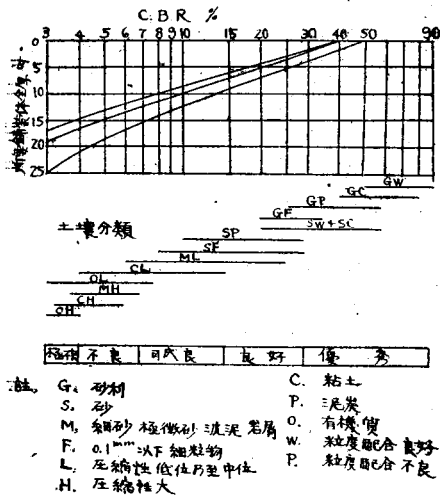 C.B.R %
3 4 5 6 7 8 9 10 15 20 30 40 50 90
0
5
10
15
20
25
GW
GC
GP
GF
SW+SC
土壤分類
SP
SF
ML
CL
OL
MH
CH
OH
不良 良好 優秀
註, G, 砂利
S, 砂
M, 細砂 極微砂 泥 岩屑
F, 0.1mm 以下 細粒物
L, 圧縮性低位乃至中位
H, 圧縮性大
C. 粘土
P. 泥炭
O. 有機質
W. 粒度配合良好
P. 粒度配合不良